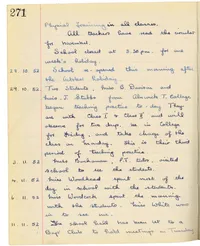 271
Physical Training in all classes.
All teachers have read the circular
for
School closed at 3.30 p.m. for one
week's holiday
28.10.52 School re-opened this morning after
the October Holiday
29.10.52 Two Students, Miss B. and
Miss J. Stubbs from Alnwick T. College
began teaching practice to-day. They
are with Class I & Class II and will
observe for two days, be in College
for Friday, and take charge of the
class on Monday. This is their third
period of teaching practice
3.11.52 Miss Buchanan, P.T. tutor, visited
School to see the students.
4.11.52 Miss Woodhead spent most of the
day in school with the students.
6.11.52 Miss spent the morning
with the students. Miss White was
in to see me.
11.11.52 The School Hall has been let to a
Boys Club to hold meetings on Tuesday